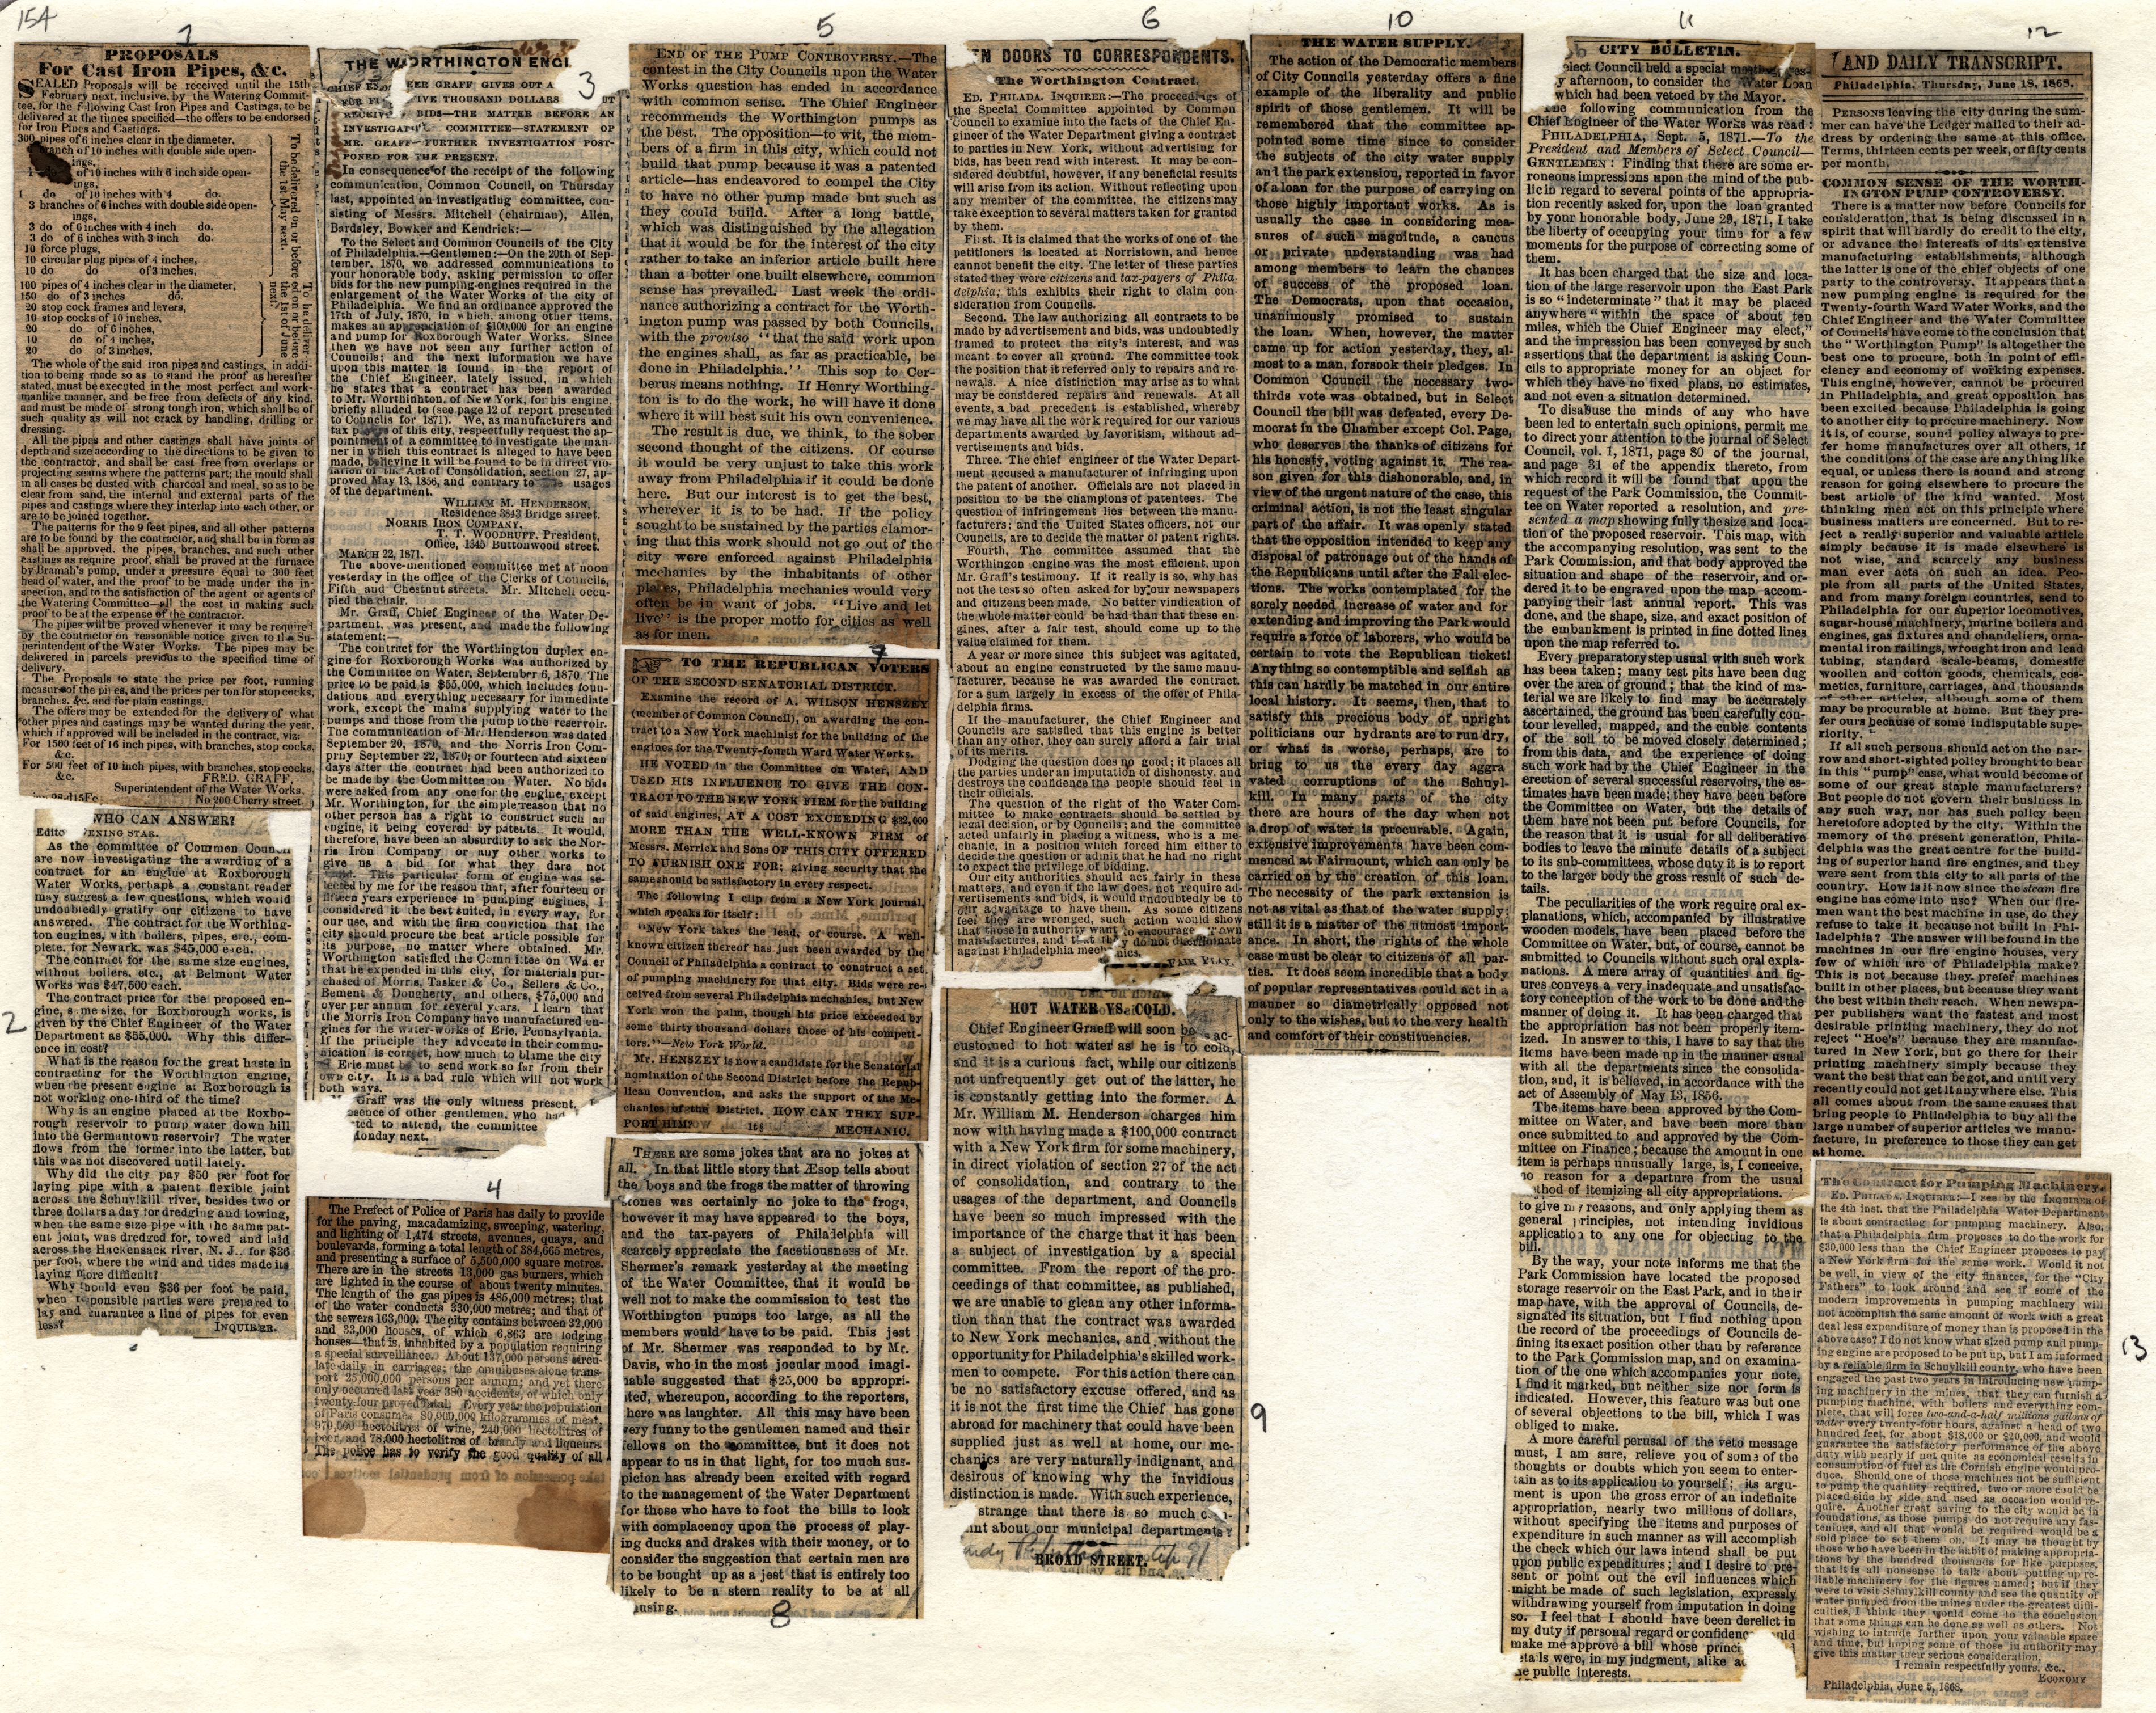 154
1
PROPOSALS
For Cast Iron Pipes, &c.
SEALED Proposals will be received until the 15th
February next, inclusive, by the Watering Commit-
tee, for the following Cast Iron Pipes and Castings, to be
delivered at the times specified—the offers to be endorsed
for Iron Pipes and Castings.
300 pipes of 6 inches clear in the diameter,
branch of 10 inches with double side open-
ings,
of 10 inches with 6 inch side open-
ings,
1 do of 10 inches with 4 do.
3 branches of 6 inches with double side open-
ings,
3 do of 6 inches with 4 inch do.
3 do of 6 inches with 3 inch do.
10 force plugs,
10 circular plug pipes of 4 inches,
10 do do of 3 inches,
To be delivered on or before the 1st May next.
100 pipes of 4 inches clear in the diameter,
150 do of 3 inches do.
20 stop cock frames and levers,
10 stop cocks of 10 inches,
20 do of 6 inches,
10 do of 4 inches,
20 do of 3 inches,
To be deliver'd on or before the 1st of June next.
The whole of the said iron pipes and castings, in addi-
tion to being made so as to stand the proof as hereafter
stated, must be executed in the most perfect and work-
manlike manner, and be free from defects of any kind,
and must be made of strong tough iron, which shall be of
such quality as will not crack by handling, drilling or
dressing.
All the pipes and other castings shall have joints of
depth and size according to the directions to be given to
the contractor, and shall be cast free from overlaps or
projecting seams where the patterns part; the mould shall
in all cases be dusted with charcoal and meal, so as to be
clear from sand, the internal and external parts of the
pipes and castings where they interlap into each other, or
are to be joined together.
The patterns for the 9 feet pipes, and all other patterns
are to be found by the contractor, and shall be in form as
shall be approved. the pipes, branches, and such other
castings as require proof, shall be proved at the furnace
by Bramah's pump, under a pressure equal to 300 feet
head of water, and the proof to be made under the in-
spection, and to the satisfaction of the agent or agents of
the Watering Committee—all the cost in making such
proof to be at the expense of the contractor.
The pipes will be proved whenever it may be require
by the contractor on reasonable notice given to the Su-
perintendent of the Water Works. The pipes may be
delivered in parcels previous to the specified time of
delivery.
The Proposals to state the price per foot, running
measure of the pipes, and the prices per ton for stop cocks,
branches, &c. and for plain castings.
The offers may be extended for the delivery of what
other pipes and castings may be wanted during the year,
which if approved will be included in the contract, viz:
For 1500 feet of 16 inch pipes, with branches, stop cocks,
&c.
For 500 feet of 10 inch pipes, with branches, stop cocks,
&c. FRED. GRAFF,
Superintendent of the Water Works,
No 200 Cherry street.
2
WHO CAN ANSWER?
Edito ENING STAR.
As the committee of Common Council
are now investigating the awarding of a
contract for an engine at Roxborough
Water Works, perhaps a constant reader
may suggest a few questions, which would
undoubtedly gratify our citizens to have
answered. The contract for the Worthing-
ton engines, with boilers, pipes, etc., com-
plete, for Newark, was $45,000 each.
The contract for the same size engines,
without boilers, etc., at Belmont Water
Works was $47,500 each.
The contract price for the proposed en-
gine, same size, for Roxborough works, is
given by the Chief Engineer of the Water
Department as $55,000. Why this differ-
ence in cost?
What is the reason for the great haste in
contracting for the Worthington engine,
when the present engine at Roxborough is
not working one-third of the time?
Why is an engine placed at the Roxbo-
rough reservoir to pump water down hill
into the Germantown reservoir? The water
flows from the former into the latter, but
this was not discovered until lately.
Why did the city pay $50 per foot for
laying pipe with a patent flexible joint
across the Schuylkill river, besides two or
three dollars a day for dredging and towing,
when the same size pipe with the same pat-
ent joint, was dredged for, towed and laid
across the Hackensack river, N. J., for $36
per foot, where the wind and tides made its
laying more difficult?
Why should even $36 per foot be paid,
when responsible parties were prepared to
lay and guarantee a line of pipes for even
less? INQUIRER.
3
THE WORTHINGTON ENGI
CHIEF ENG EER GRAFF GIVES OUT A
FOR FI IVE THOUSAND DOLLARS UT
RECEIVI BIDS—THE MATTER BEFORE AN
INVESTIGATI COMMITTEE—STATEMENT OF
MR. GRAFF—FURTHER INVESTIGATION POST-
PONED FOR THE PRESENT.
In consequence of the receipt of the following
communication, Common Council, on Thursday
last, appointed an investigating committee, con-
sisting of Messrs. Mitchell (chairman), Allen,
Bardsley, Bowker and Kendrick:—
To the Select and Common Councils of the City
of Philadelphia.—Gentlemen:—On the 20th of Sep-
tember, 1870, we addressed communications to
your honorable body, asking permission to offer
bids for the new pumping-engines required in the
enlargement of the Water Works of the city of
Philadelphia. We find an ordinance approved the
17th of July, 1870, in which, among other items,
makes an appropriation of $100,000 for an engine
and pump for Roxborough Water Works. Since
then we have not seen any further action of
Councils; and the next information we have
upon this matter is found in the report of
the Chief Engineer, lately issued, in which
he states that a contract has been awarded
to Mr. Worthinhton, of New York, for his engine,
briefly alluded to (see page 12 of report presented
to Councils for 1871). We, as manufacturers and
tax payers of this city, respectfully request the ap-
pointment of a committee to investigate the man-
ner in which this contract is alleged to have been
made, believing it will be found to be in direct vio-
lation of the Act of Consolidation, section 27, ap-
proved May 13, 1856, and contrary to the usages
of the department.
WILLIAM M. HENDERSON,
Residence 3843 Bridge street.
NORRIS IRON COMPANY,
T. T. WOODRUFF, President,
Office, 1345 Buttonwood street.
MARCH 22, 1871.
The above-mentioned committee met at noon
yesterday in the office of the Clerks of Councils,
Fifth and Chestnut streets. Mr. Mitchell occu-
pied the chair.
Mr. Graff, Chief Engineer of the Water De-
partment, was present, and made the following
statement:—
The contract for the Worthington duplex en-
gine for Roxborough Works was authorized by
the Committee on Water, September 6, 1870. The
price to be paid is $55,000, which includes foun-
dations and everything necessary for immediate
work, except the mains supplying water to the
pumps and those from the pump to the reservoir.
The communication of Mr. Henderson was dated
September 20, 1870, and the Norris Iron Com-
pany September 22, 1870; or fourteen and sixteen
days after the contract had been authorized to
be made by the Committee on Water. No bids
were asked from any one for the engine, except
Mr. Worthington, for the simple reason that no
other person has a right to construct such an
engine, it being covered by patents. It would,
therefore, have been an absurdity to ask the Nor-
ris Iron Company or any other works to
give us a bid for what they dare not
build. This particular form of engine was se-
lected by me for the reason that, after fourteen or
fifteen years experience in pumping engines, I
considered it the best suited, in every way, for
our use, and with the firm conviction that the
city should procure the best article possible for
its purpose, no matter where obtained. Mr.
Worthington satisfied the Committee on Water
that he expended in this city, for materials pur-
chased of Morris, Tasker & Co., Sellers & Co.,
Bement & Dougherty, and others, $75,000 and
over per annum for several years. I learn that
the Morris Iron Company have manufactured en-
gines for the water-works of Erie, Pennsylvania.
If the principle they advocate in their commu-
nication is correct, how much to blame the city
Erie must be to send work so far from their
own city. It is a bad rule which will not work
both ways.
Graff was the only witness present,
sence of other gentlemen, who had
ted to attend, the committee
onday next.
4
The Prefect of Police of Paris has daily to provide
for the paving, macadamizing, sweeping, watering,
and lighting of 1,474 streets, avenues, quays, and
boulevards, forming a total length of 384,665 metres,
and presenting a surface of 5,500,000 square metres.
There are in the streets 13,000 gas burners, which
are lighted in the course of about twenty minutes.
The length of the gas pipes is 485,000 metres; that
of the water conducts 330,000 metres; and that of
the sewers 163,000. The city contains between 32,000
and 33,000 houses, of which 6,863 are lodging
houses—that is, inhabited by a population requiring
a special surveillance. About 137,000 persons circu-
late daily in carriages; the omnibuses alone trans-
port 25,000,000 persons per annum; and yet there
only occurred last year 380 accidents, of which only
twenty-four proved fatal. Every year the population
of Paris consumes 80,000,000 kilogrammes of meat,
970,000 hectolitres of wine, 240,000 hectolitres of
beer, and 78,000 hectolitres of brandy and liqueurs.
The police has to verify the good quality of all
5
END OF THE PUMP CONTROVERSY.—The
contest in the City Councils upon the Water
Works question has ended in accordance
with common sense. The Chief Engineer
recommends the Worthington pumps as
the best. The opposition—to wit, the mem-
bers of a firm in this city, which could not
build that pump because it was a patented
article—has endeavored to compel the City
to have no other pump made but such as
they could build. After a long battle,
which was distinguished by the allegation
that it would be for the interest of the city
rather to take an inferior article built here
than a better one built elsewhere, common
sense has prevailed. Last week the ordi-
nance authorizing a contract for the Worth-
ington pump was passed by both Councils,
with the proviso "that the said work upon
the engines shall, as far as practicable, be
done in Philadelphia." This sop to Cer-
berus means nothing. If Henry Worthing-
ton is to do the work, he will have it done
where it will best suit his own convenience.
The result is due, we think, to the sober
second thought of the citizens. Of course
it would be very unjust to take this work
away from Philadelphia if it could be done
here. But our interest is to get the best,
wherever it is to be had. If the policy
sought to be sustained by the parties clamor-
ing that this work should not go out of the
city were enforced against Philadelphia
mechanics by the inhabitants of other
places, Philadelphia mechanics would very
often be in want of jobs. "Live and let
live" is the proper motto for cities as well
as for men.
7
TO THE REPUBLICAN VOTERS
OF THE SECOND SENATORIAL DISTRICT.
Examine the record of A. WILSON HENSZEY
(member of Common Council), on awarding the con-
tract to a New York machinist for the building of the
engines for the Twenty-fourth Ward Water Works.
HE VOTED in the Committee on Water, AND
USED HIS INFLUENCE TO GIVE THE CON-
TRACT TO THE NEW YORK FIRM for the building
of said engines, AT A COST EXCEEDING $32,000
MORE THAN THE WELL-KNOWN FIRM OF
Messrs. Merrick and Sons OF THIS CITY OFFERED
TO FURNISH ONE FOR; giving security that the
same should be satisfactory in every respect.
The following I clip from a New York journal,
which speaks for itself:
"New York takes the lead, of course. A well-
known citizen thereof has just been awarded by the
Council of Philadelphia a contract to construct a set
of pumping machinery for that city. Bids were re-
ceived from several Philadelphia mechanics, but New
York won the palm, though his price exceeded by
some thirty thousand dollars those of his competi-
tors."—New York World.
Mr. HENSZEY is now a candidate for the Senatorial
nomination of the Second District before the Repub-
lican Convention, and asks the support of the Me-
chanics of the District. HOW CAN THEY SUP-
PORT HIM? 1t§ MECHANIC.
THERE are some jokes that are no jokes at
all. In that little story that Æsop tells about
the boys and the frogs the matter of throwing
stones was certainly no joke to the frogs,
however it may have appeared to the boys,
and the tax-payers of Philadelphia will
scarcely appreciate the facetiousness of Mr.
Shermer's remark yesterday at the meeting
of the Water Committee, that it would be
well not to make the commission to test the
Worthington pumps too large, as all the
members would have to be paid. This jest
of Mr. Shermer was responded to by Mr.
Davis, who in the most jocular mood imagi-
nable suggested that $25,000 be appropri-
ted, whereupon, according to the reporters,
here was laughter. All this may have been
very funny to the gentlemen named and their
fellows on the committee, but it does not
appear to us in that light, for too much sus-
picion has already been excited with regard
to the management of the Water Department
for those who have to foot the bills to look
with complacency upon the process of play-
ing ducks and drakes with their money, or to
consider the suggestion that certain men are
to be bought up as a jest that is entirely too
likely to be a stern reality to be at all
using.
8
6
N DOORS TO CORRESPONDENTS.
The Worthington Contract.
ED. PHILADA. INQUIRER:—The proceedings of
the Special Committee appointed by Common
Council to examine into the facts of the Chief En-
gineer of the Water Department giving a contract
to parties in New York, without advertising for
bids, has been read with interest. It may be con-
sidered doubtful, however, if any beneficial results
will arise from its action. Without reflecting upon
any member of the committee, the citizens may
take exception to several matters taken for granted
by them.
First. It is claimed that the works of one of the
petitioners is located at Norristown, and hence
cannot benefit the city. The letter of these parties
stated they were citizens and tax-payers of Phila-
delphia; this exhibits their right to claim con-
sideration from Councils.
Second. The law authorizing all contracts to be
made by advertisement and bids, was undoubtedly
framed to protect the city's interest, and was
meant to cover all ground. The committee took
the position that it referred only to repairs and re-
newals. A nice distinction may arise as to what
may be considered repairs and renewals. At all
events, a bad precedent is established, whereby
we may have all the work required for our various
departments awarded by favoritism, without ad-
vertisements and bids.
Three. The chief engineer of the Water Depart-
ment accused a manufacturer of infringing upon
the patent of another. Officials are not placed in
position to be the champions of patentees. The
question of infringement lies between the manu-
facturers; and the United States officers, not our
Councils, are to decide the matter of patent rights.
Fourth, The committee assumed that the
Worthingon engine was the most efficient, upon
Mr. Graff's testimony. If it really is so, why has
not the test so often asked for by our newspapers
and citizens been made. No better vindication of
the whole matter could be had than that these en-
gines, after a fair test, should come up to the
value claimed for them.
A year or more since this subject was agitated,
about an engine constructed by the same manu-
facturer, because he was awarded the contract,
for a sum largely in excess of the offer of Phila-
delphia firms.
If the manufacturer, the Chief Engineer and
Councils are satisfied that this engine is better
than any other, they can surely afford a fair trial
of its merits.
Dodging the question does no good; it places all
the parties under an imputation of dishonesty, and
destroys the confidence the people should feel in
their officials.
The question of the right of the Water Com-
mittee to make contracts should be settled by
legal decision, or by Councils; and the committee
acted unfairly in placing a witness, who is a me-
chanic, in a position which forced him either to
decide the question or admit that he had no right
to expect the privilege of bidding.
Our city authorities should act fairly in these
matters, and even if the law does not require ad-
vertisements and bids, it would undoubtedly be to
our advantage to have them. As some citizens
feel they are wronged, such action would show
that those in authority want to encourage own
manufactures, and that they do not discriminate
against Philadelphia mechanics.
FAIR PLAY.
HOT WATER VS. COLD.
Chief Engineer Graeff will soon be ac-
customed to hot water as he is to cold,
and it is a curious fact, while our citizens
not unfrequently get out of the latter, he
is constantly getting into the former. A
Mr. William M. Henderson charges him
now with having made a $100,000 contract
with a New York firm for some machinery,
in direct violation of section 27 of the act
of consolidation, and contrary to the
usages of the department, and Councils
have been so much impressed with the
importance of the charge that it has been
a subject of investigation by a special
committee. From the report of the pro-
ceedings of that committee, as published,
we are unable to glean any other informa-
tion than that the contract was awarded
to New York mechanics, and without the
opportunity for Philadelphia's skilled work-
men to compete. For this action there can
be no satisfactory excuse offered, and as
it is not the first time the Chief has gone
abroad for machinery that could have been
supplied just as well at home, our me-
chanics are very naturally indignant, and
desirous of knowing why the invidious
distinction is made. With such experience,
strange that there is so much c
int about our municipal departments?
BROAD STREET.
9
10
THE WATER SUPPLY.
The action of the Democratic members
of City Councils yesterday offers a fine
example of the liberality and public
spirit of those gentlemen. It will be
remembered that the committee ap-
pointed some time since to consider
the subjects of the city water supply
and the park extension, reported in favor
of a loan for the purpose of carrying on
those highly important works. As is
usually the case in considering mea-
sures of such magnitude, a caucus
or private understanding was had
among members to learn the chances
of success of the proposed loan.
The Democrats, upon that occasion,
unanimously promised to sustain
the loan. When, however, the matter
came up for action yesterday, they, al-
most to a man, forsook their pledges. In
Common Council the necessary two-
thirds vote was obtained, but in Select
Council the bill was defeated, every De-
mocrat in the Chamber except Col. Page,
who deserves the thanks of citizens for
his honesty, voting against it. The rea-
son given for this dishonorable, and, in
view of the urgent nature of the case, this
criminal action, is not the least singular
part of the affair. It was openly stated
that the opposition intended to keep any
disposal of patronage out of the hands of
the Republicans until after the Fall elec-
tions. The works contemplated for the
sorely needed increase of water and for
extending and improving the Park would
require a force of laborers, who would be
certain to vote the Republican ticket!
Anything so contemptible and selfish as
this can hardly be matched in our entire
local history. It seems, then, that to
satisfy this precious body of upright
politicians our hydrants are to run dry,
or what is worse, perhaps, are to
bring to us the every day aggra
vated corruptions of the Schuyl-
kill. In many parts of the city
there are hours of the day when not
a drop of water is procurable. Again,
extensive improvements have been com-
menced at Fairmount, which can only be
carried on by the creation of this loan.
The necessity of the park extension is
not as vital as that of the water supply;
still it is a matter of the utmost import-
ance. In short, the rights of the whole
case must be clear to citizens of all par-
ties. It does seem incredible that a body
of popular representatives could act in a
manner so diametrically opposed not
only to the wishes, but to the very health
and comfort of their constituencies.
11
CITY BULLETIN.
elect Council held a special meeting yes-
y afternoon, to consider the Water Loan
which had been vetoed by the Mayor.
The following communication from the
Chief Engineer of the Water Works was read:
PHILADELPHIA, Sept. 5, 1871.—To the
President and Members of Select Council—
GENTLEMEN: Finding that there are some er-
roneous impressions upon the mind of the pub-
lic in regard to several points of the appropria-
tion recently asked for, upon the loan granted
by your honorable body, June 29, 1871, I take
the liberty of occupying your time for a few
moments for the purpose of correcting some of
them.
It has been charged that the size and loca-
tion of the large reservoir upon the East Park
is so "indeterminate" that it may be placed
anywhere "within the space of about ten
miles, which the Chief Engineer may elect,"
and the impression has been conveyed by such
assertions that the department is asking Coun-
cils to appropriate money for an object for
which they have no fixed plans, no estimates,
and not even a situation determined.
To disabuse the minds of any who have
been led to entertain such opinions, permit me
to direct your attention to the journal of Select
Council, vol. 1, 1871, page 80 of the journal,
and page 31 of the appendix thereto, from
which record it will be found that upon the
request of the Park Commission, the Commit-
tee on Water reported a resolution, and pre-
sented a map showing fully the size and loca-
tion of the proposed reservoir. This map, with
the accompanying resolution, was sent to the
Park Commission, and that body approved the
situation and shape of the reservoir, and or-
dered it to be engraved upon the map accom-
panying their last annual report. This was
done, and the shape, size, and exact position of
the embankment is printed in fine dotted lines
upon the map referred to.
Every preparatory step usual with such work
has been taken; many test pits have been dug
over the area of ground; that the kind of ma-
terial we are likely to find may be accurately
ascertained, the ground has been carefully con-
tour levelled, mapped, and the cubic contents
of the soil to be moved closely determined;
from this data, and the experience of doing
such work had by the Chief Engineer in the
erection of several successful reservoirs, the es-
timates have been made; they have been before
the Committee on Water, but the details of
them have not been put before Councils, for
the reason that it is usual for all deliberative
bodies to leave the minute details of a subject
to its sub-committees, whose duty it is to report
to the larger body the gross result of such de-
tails.
The peculiarities of the work require oral ex-
planations, which, accompanied by illustrative
wooden models, have been placed before the
Committee on Water, but, of course, cannot be
submitted to Councils without such oral expla-
nations. A mere array of quantities and fig-
ures conveys a very inadequate and unsatisfac-
tory conception of the work to be done and the
manner of doing it. It has been charged that
the appropriation has not been properly item-
ized. In answer to this, I have to say that the
items have been made up in the manner usual
with all the departments since the consolida-
tion, and, it is believed, in accordance with the
act of Assembly of May 13, 1856.
The items have been approved by the Com-
mittee on Water, and have been more than
once submitted to and approved by the Com-
mittee on Finance; because the amount in one
item is perhaps unusually large, is, I conceive,
no reason for a departure from the usual
thod of itemizing all city appropriations.
to give my reasons, and only applying them as
general principles, not intending invidious
application to any one for objecting to the
bill.
By the way, your note informs me that the
Park Commission have located the proposed
storage reservoir on the East Park, and in their
map have, with the approval of Councils, de-
signated its situation, but I find nothing upon
the record of the proceedings of Councils de-
fining its exact position other than by reference
to the Park Commission map, and on examina-
tion of the one which accompanies your note,
I find it marked, but neither size nor form is
indicated. However, this feature was but one
of several objections to the bill, which I was
obliged to make.
A more careful perusal of the veto message
must, I am sure, relieve you of some of the
thoughts or doubts which you seem to enter-
tain as to its application to yourself; its argu-
ment is upon the gross error of an indefinite
appropriation, nearly two millions of dollars,
without specifying the items and purposes of
expenditure in such manner as will accomplish
the check which our laws intend shall be put
upon public expenditures; and I desire to pre-
sent or point out the evil influences which
might be made of such legislation, expressly
withdrawing yourself from imputation in doing
so. I feel that I should have been derelict in
my duty if personal regard or confidenc uld
make me approve a bill whose princi
etails were, in my judgment, alike a
e public interests.
12
AND DAILY TRANSCRIPT.
Philadelphia, Thursday, June 18, 1868.
PERSONS leaving the city during the sum-
mer can have the Ledger mailed to their ad-
dress by ordering the same at this office.
Terms, thirteen cents per week, or fifty cents
per month.
COMMON SENSE OF THE WORTH-
INGTON PUMP CONTROVERSY.
There is a matter now before Councils for
consideration, that is being discussed in a
spirit that will hardly do credit to the city,
or advance the interests of its extensive
manufacturing establishments, although
the latter is one of the chief objects of one
party to the controversy. It appears that a
new pumping engine is required for the
Twenty-fourth Ward Water Works, and the
Chief Engineer and the Water Committee
of Councils have come to the conclusion that
the "Worthington Pump" is altogether the
best one to procure, both in point of effi-
ciency and economy of working expenses.
This engine, however, cannot be procured
in Philadelphia, and great opposition has
been excited because Philadelphia is going
to another city to procure machinery. Now
it is, of course, sound policy always to pre-
fer home manufactures over all others, if
the conditions of the case are anything like
equal, or unless there is sound and strong
reason for going elsewhere to procure the
best article of the kind wanted. Most
thinking men act on this principle where
business matters are concerned. But to re-
ject a really superior and valuable article
simply because it is made elsewhere is
not wise, and scarcely any business
man ever acts on such an idea. Peo-
ple from all parts of the United States,
and from many foreign countries, send to
Philadelphia for our superior locomotives,
sugar-house machinery, marine boilers and
engines, gas fixtures and chandeliers, orna-
mental iron railings, wrought iron and lead
tubing, standard scale-beams, domestic
woollen and cotton goods, chemicals, cos-
metics, furniture, carriages, and thousands
of other articles, although some of them
may be procurable at home. But they pre-
fer ours because of some indisputable supe-
riority.
If all such persons should act on the nar-
row and short-sighted policy brought to bear
in this "pump" case, what would become of
some of our great staple manufacturers?
But people do not govern their business in
any such way, nor has such policy been
heretofore adopted by the city. Within the
memory of the present generation, Phila-
delphia was the great centre for the build-
ing of superior hand fire engines, and they
were sent from this city to all parts of the
country. How is it now since the steam fire
engine has come into use? When our fire-
men want the best machine in use, do they
refuse to take it because not built in Phi-
ladelphia? The answer will be found in the
machines in our fire engine houses, very
few of which are of Philadelphia make?
This is not because they prefer machines
built in other places, but because they want
the best within their reach. When newspa-
per publishers want the fastest and most
desirable printing machinery, they do not
reject "Hoe's" because they are manufac-
tured in New York, but go there for their
printing machinery simply because they
want the best that can be got, and until very
recently could not get it anywhere else. This
all comes about from the same causes that
bring people to Philadelphia to buy all the
large number of superior articles we manu-
facture, in preference to those they can get
at home.
13
The Contract for Pumping Machinery.
ED. PHILADA. INQUIRER:—I see by the INQUIRER of
the 4th inst. that the Philadelphia Water Department
is about contracting for pumping machinery. Also,
that a Philadelphia firm proposes to do the work for
$30,000 less than the Chief Engineer proposes to pay
a New York firm for the same work. Would it not
be well, in view of the city finances, for the "City
Fathers" to look around and see if some of the
modern improvements in pumping machinery will
not accomplish the same amount of work with a great
deal less expenditure of money than is proposed in the
above case? I do not know what sized pump and pump-
ing engine are proposed to be put up, but I am informed
by a reliable firm in Schuylkill county, who have been
engaged the past two years in introducing new pump-
ing machinery in the mines, that they can furnish a
pumping machine, with boilers and everything com-
plete, that will force two-and-a-half millions gallons of
water every twenty-four hours, against a head of two
hundred feet, for about $18,000 or $20,000, and would
guarantee the satisfactory performance of the above
duty with nearly if not quite as economical results in
consumption of fuel as the Cornish engine would pro-
duce. Should one of those machines not be sufficient
to pump the quantity required, two or more could be
placed side by side and used as occasion would re-
quire. Another great saving to the city would be in
foundations, as those pumps do not require any fas-
tenings, and all that would be required would be a
solid place to set them on. It may be thought by
those who have been in the habit of making appropria-
tions by the hundred thousands for like purposes,
that it is all nonsense to talk about putting up re-
liable machinery for the figures named; but if they
were to visit Schuylkill county and see the quantity of
water pumped from the mines under the greatest diffi-
culties, I think they would come to the conclusion
that some things can be done as well as others. Not
wishing to intrude further upon your valuable space
and time, but hoping some of those in authority may
give this matter their serious consideration,
I remain respectfully yours, &c.,
ECONOMY
Philadelphia, June 5, 1868.